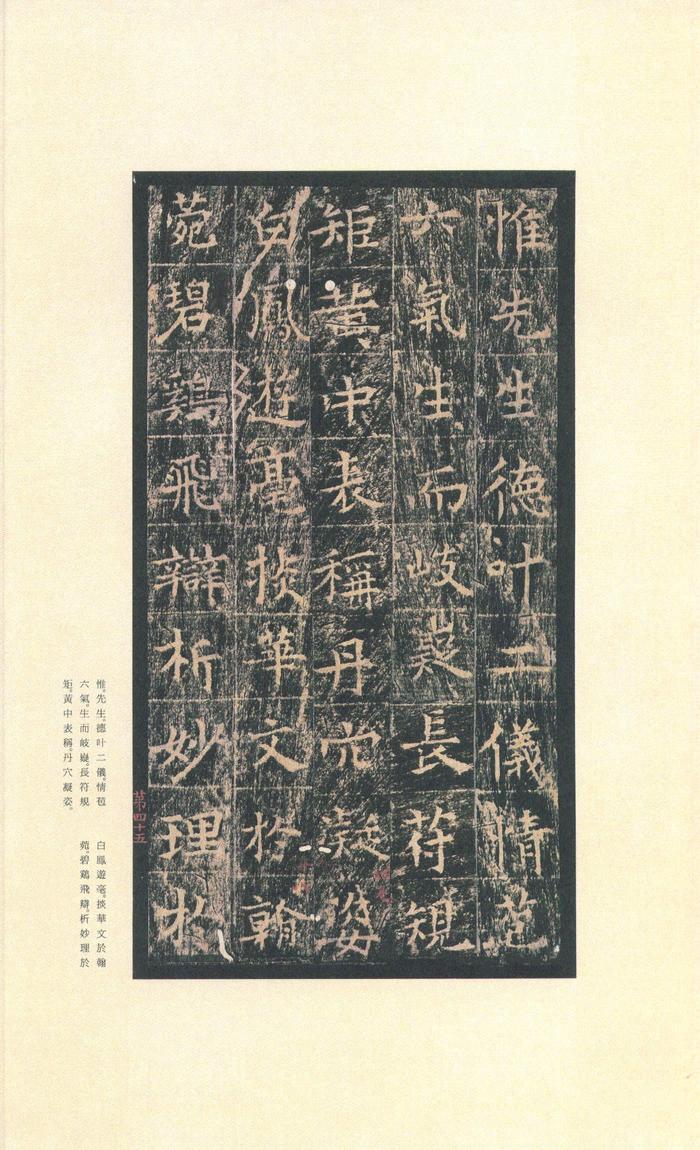 惟先生德叶二儀情苞
六氣生而岐嶷長符規
矩黃中表稱丹穴凝姿
白鳳遊毫掞華文於翰
菀碧鷄飛辯析妙理於
第四十五
惟先生。德叶二儀。情苞
六氣。生而岐嶷。長符規
矩。黃中表稱。丹穴凝姿。
白鳳遊毫。掞華文於翰
菀。碧鷄飛辯。析妙理於